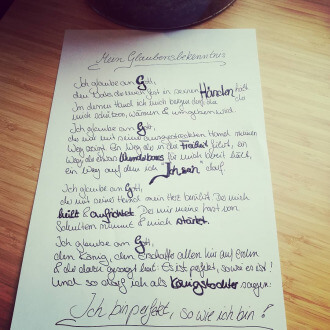 Mein Glaubensbekenntnis
Ich glaube an Gott,
den der mich fest in seinen Händen hält
In deren Hand ich mich bergen darf, die
mich schützen, wärmen &
Ich glaube an Gott,
der mir mit seiner ausgestreckten Hand meinen
Weg zeigt. Ein Weg der in die Freiheit führt, ein
Weg der etwas Wunderbares für mich bereit hält,
ein Weg auf dem ich "Ich sein" darf.
Ich glaube an Gott,
der mit seiner Hand mein Herz berührt. Der mich
heilt & aufrichtet. Der mir meine Last von
Schultern nimmt & mich stärkt.
Ich glaube an Gott,
den König, den Erschaffer allen hier auf Erden
& der dazu gesagt hat: Es ist perfekt, so wie es ist!
Und so darf ich als Königstochter sagen:
Ich bin perfekt, so wie ich bin!